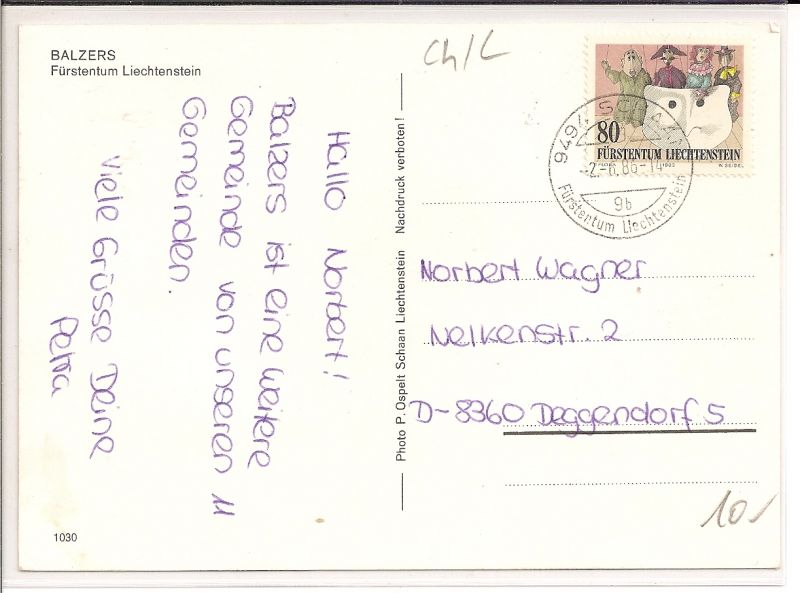 BALZERS
Fürstentum Liechtenstein
Hallo Norbert!
Balzers ist eine weitere
Gemeinde von unseren 11
Gemeinden.
Viele Grüsse Deine
Petra
1030
Photo P. Ospelt Schaan Liechtenstein Nachdruck verboten!
Ch/L
80
FÜRSTENTUM LIECHTENSTEIN
1985
W. SEIDEL
9494 SCHAAN
-2.-6.86-14
9b
Fürstentum Liechtenstein
Norbert Wagner
Nelkenstr. 2
D-8360 Deggendorf 5
10,-